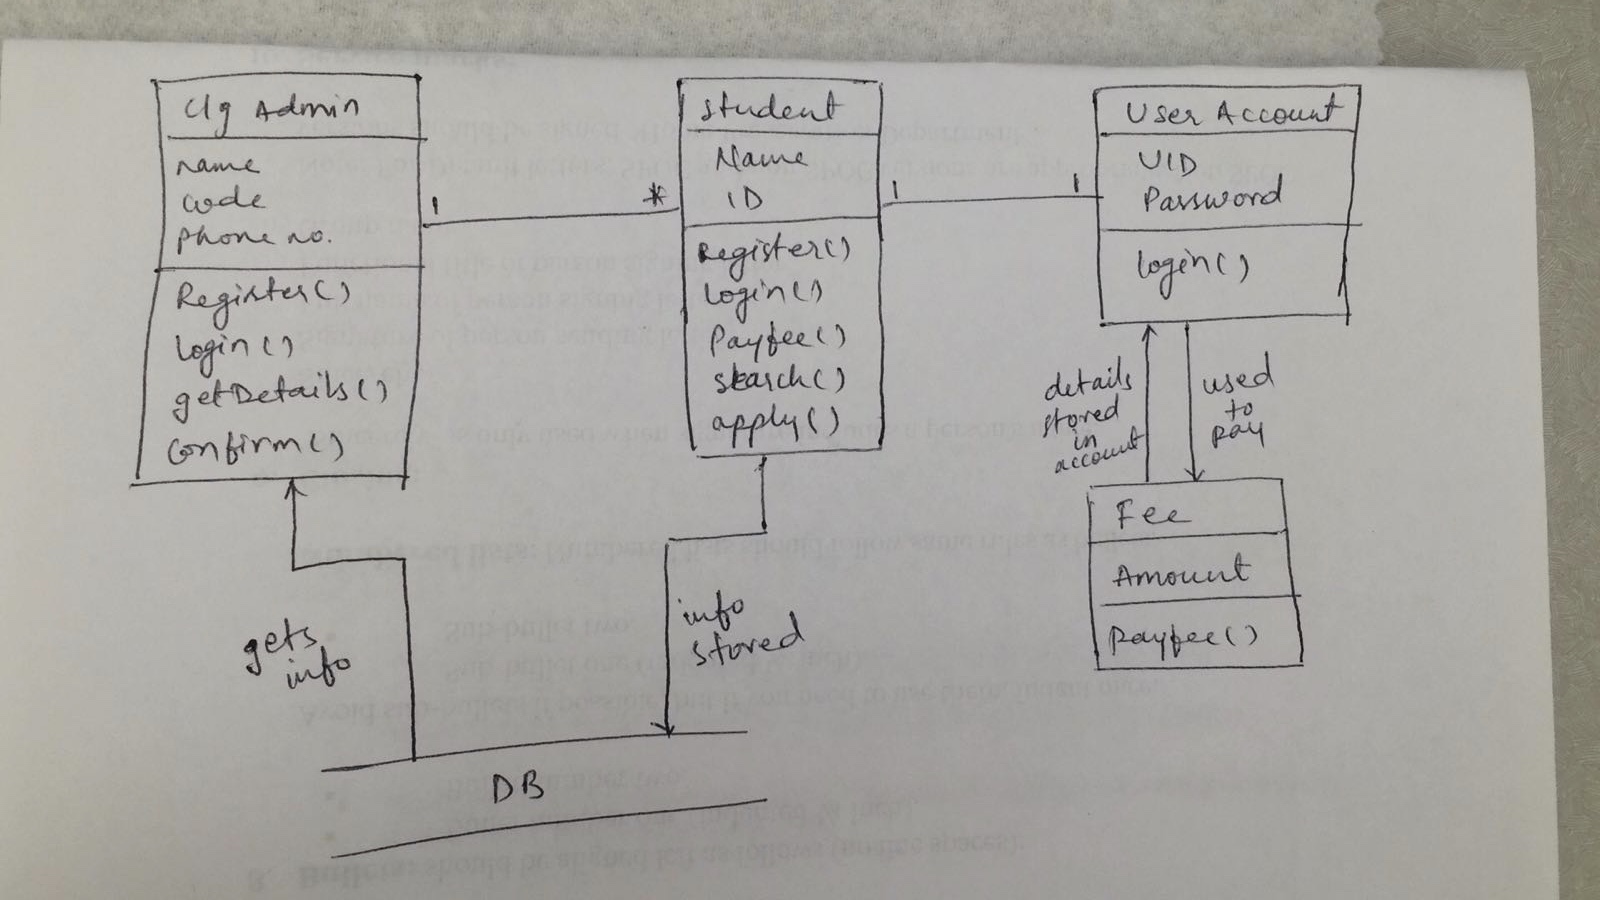 Clg Admin
name
code
Phone no.
Register()
login()
getDetails()
Confirm()
1
*
Student
Name
ID
Register()
login()
Payfee()
search()
apply()
1
1
User Account
UID
Password
login()
details
stored
in
account
used
to
pay
Fee
Amount
Payfee()
gets
info
info
stored
DB